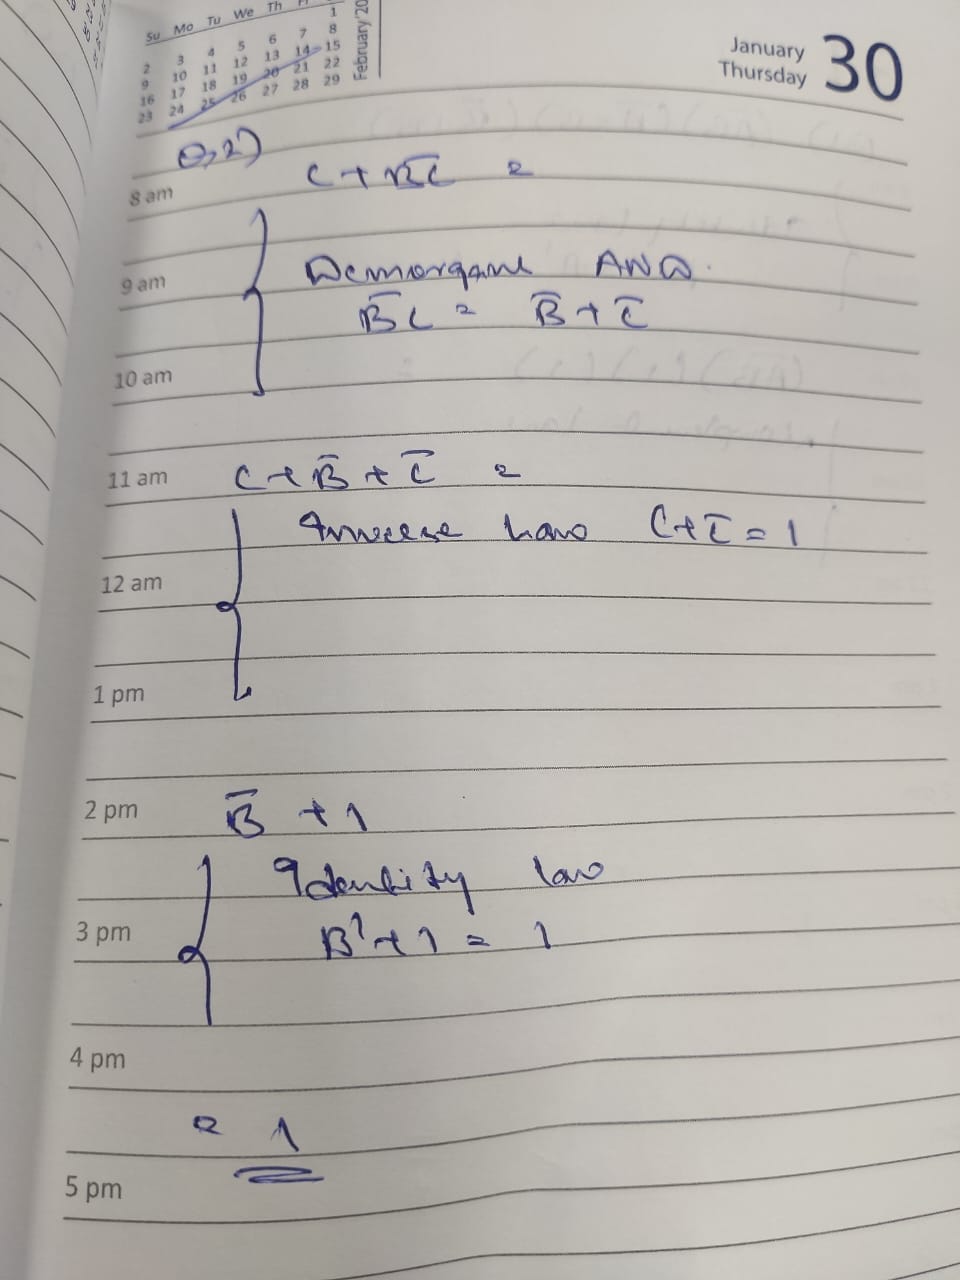 Su Mo Tu We Th
1
2 3 4 5 6 7 8
9 10 11 12 13 14 15
16 17 18 19 20 21 22
23 24 25 26 27 28 29
February'20
January
Thursday
30
Q,2)
8 am
C + B̅C̅ =
9 am
Demorgans AND.
B̅C = B̅ + C̅
10 am
11 am C + B̅ + C̅ =
Inverse law C + C̅ = 1
12 am
1 pm
2 pm B̅ + 1
Identity law
3 pm B' + 1 = 1
4 pm
= 1
5 pm